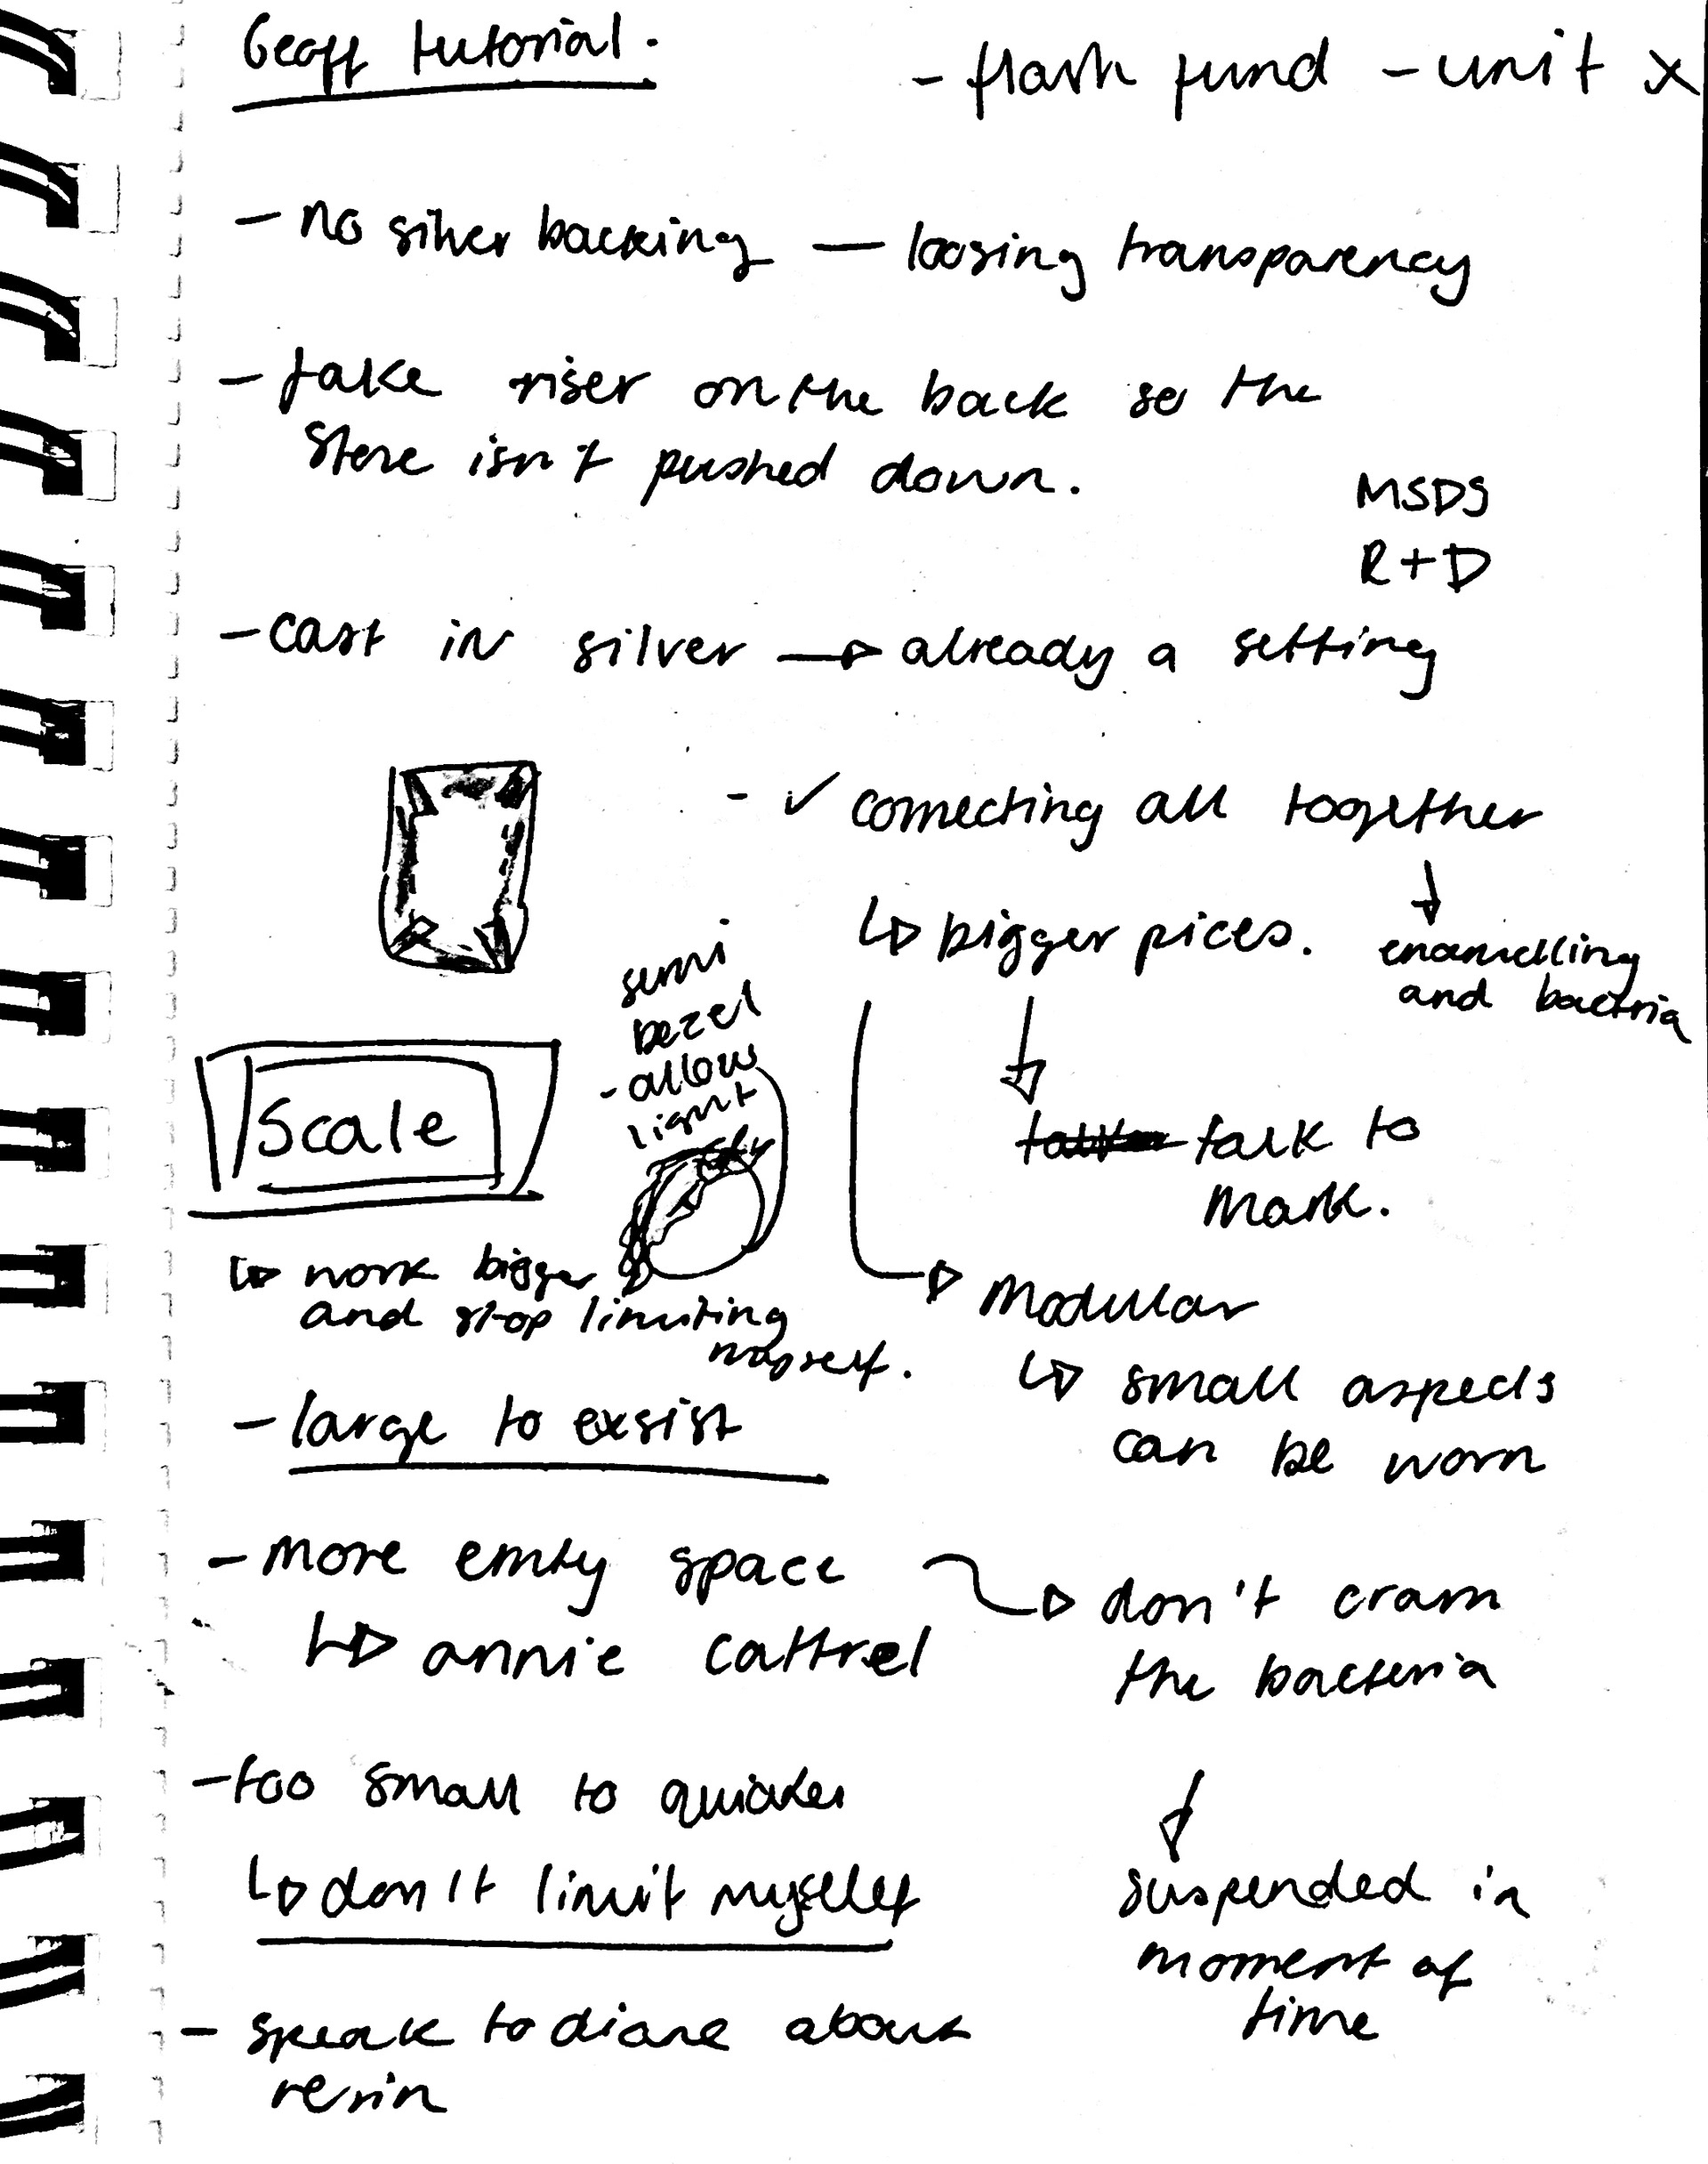 Geoff tutorial.
- flash fund - unit x
- no silver backing — loosing transparency
- fake riser on the back so the
stone isn't pushed down.
MSDS
R+D
- cast in silver → already a setting
- ✓ connecting all together
↳ bigger pices.
enamelling
and bactria
semi
bezel
- allow
light
Scale
talk to
Mark.
↳ work bigger
and stop limiting
myself.
Modular
↳ small aspects
can be worn
- large to exsist
- more emty space → don't cram
the bacteria
↳ annie cattrel
- too small to
↳ don't limit myself
suspended in
moment of
time
- speak to diane about
resin